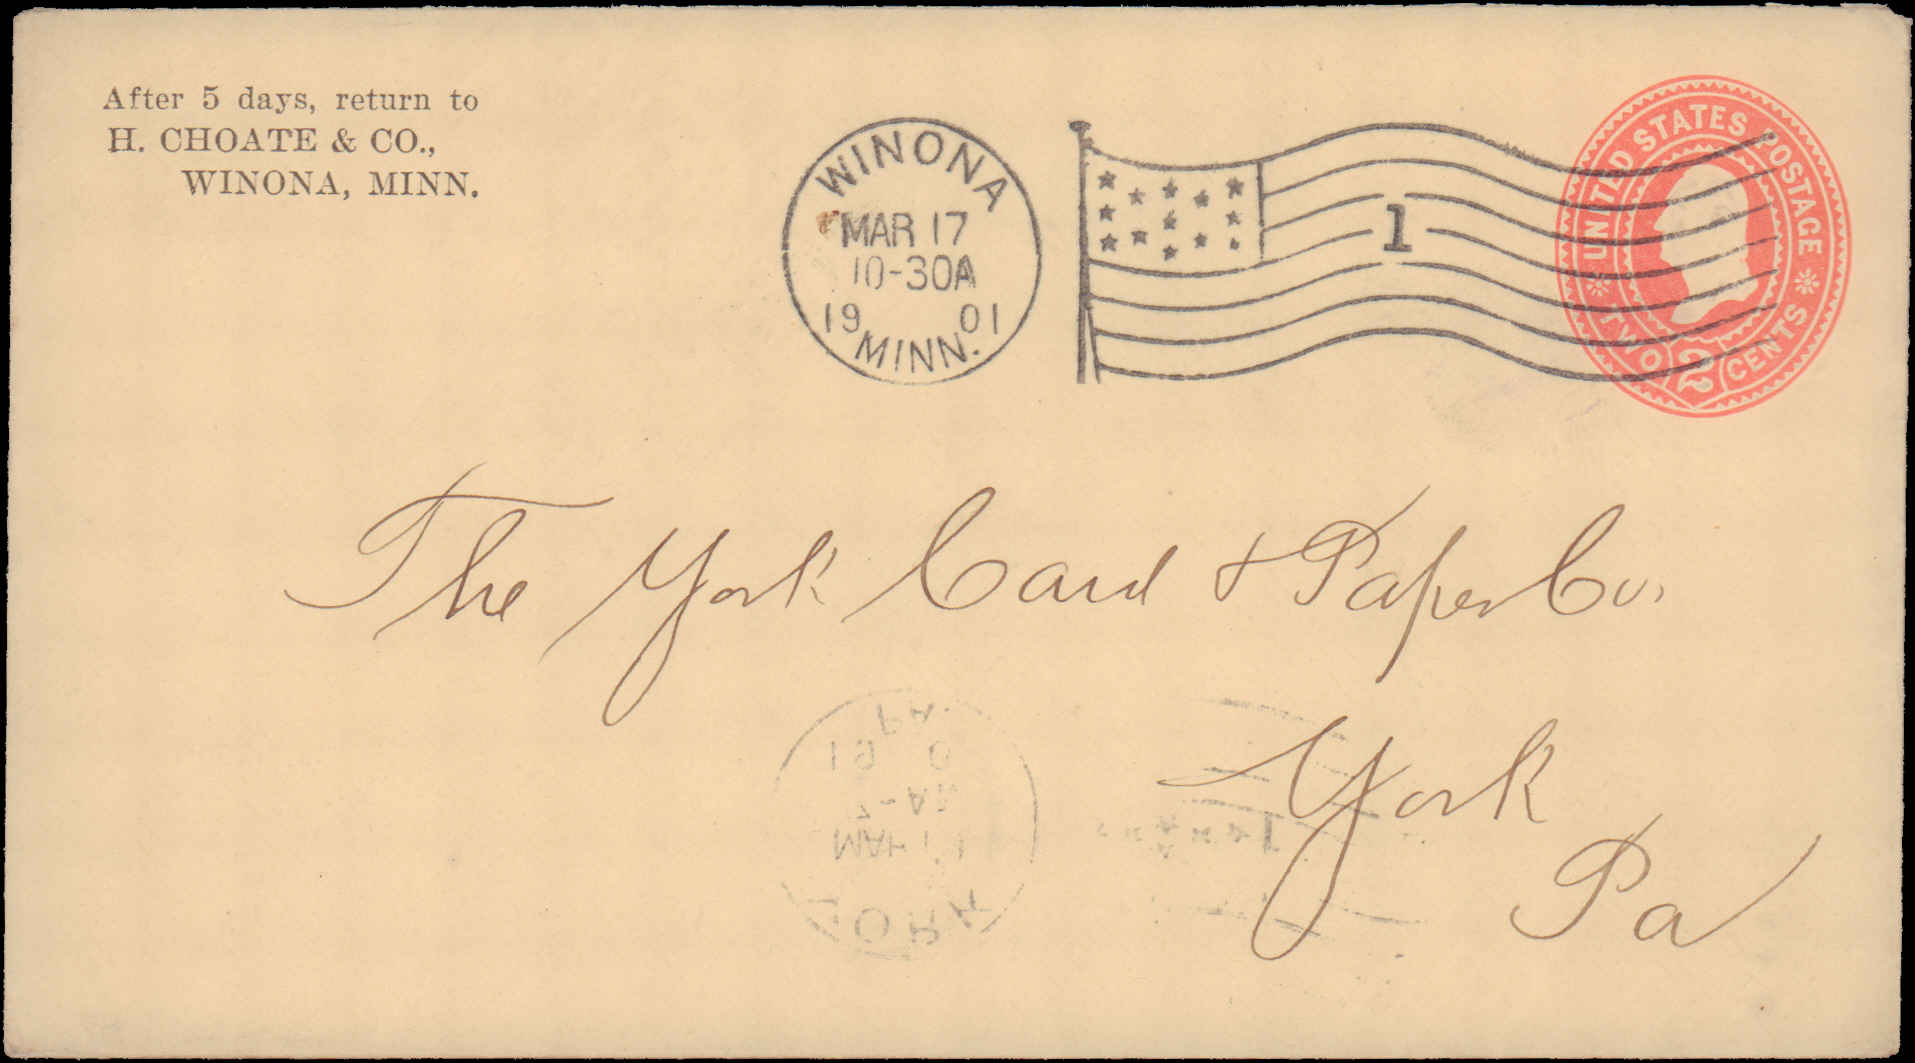 After 5 days, return to
H. CHOATE & CO.,
WINONA, MINN.
WINONA
MAR 17
10-30A
19 01
MINN.
1
UNITED STATES POSTAGE
TWO 2 CENTS
The York Card & Paper Co.
York
Pa
PA.
19 0
MAR
YORK